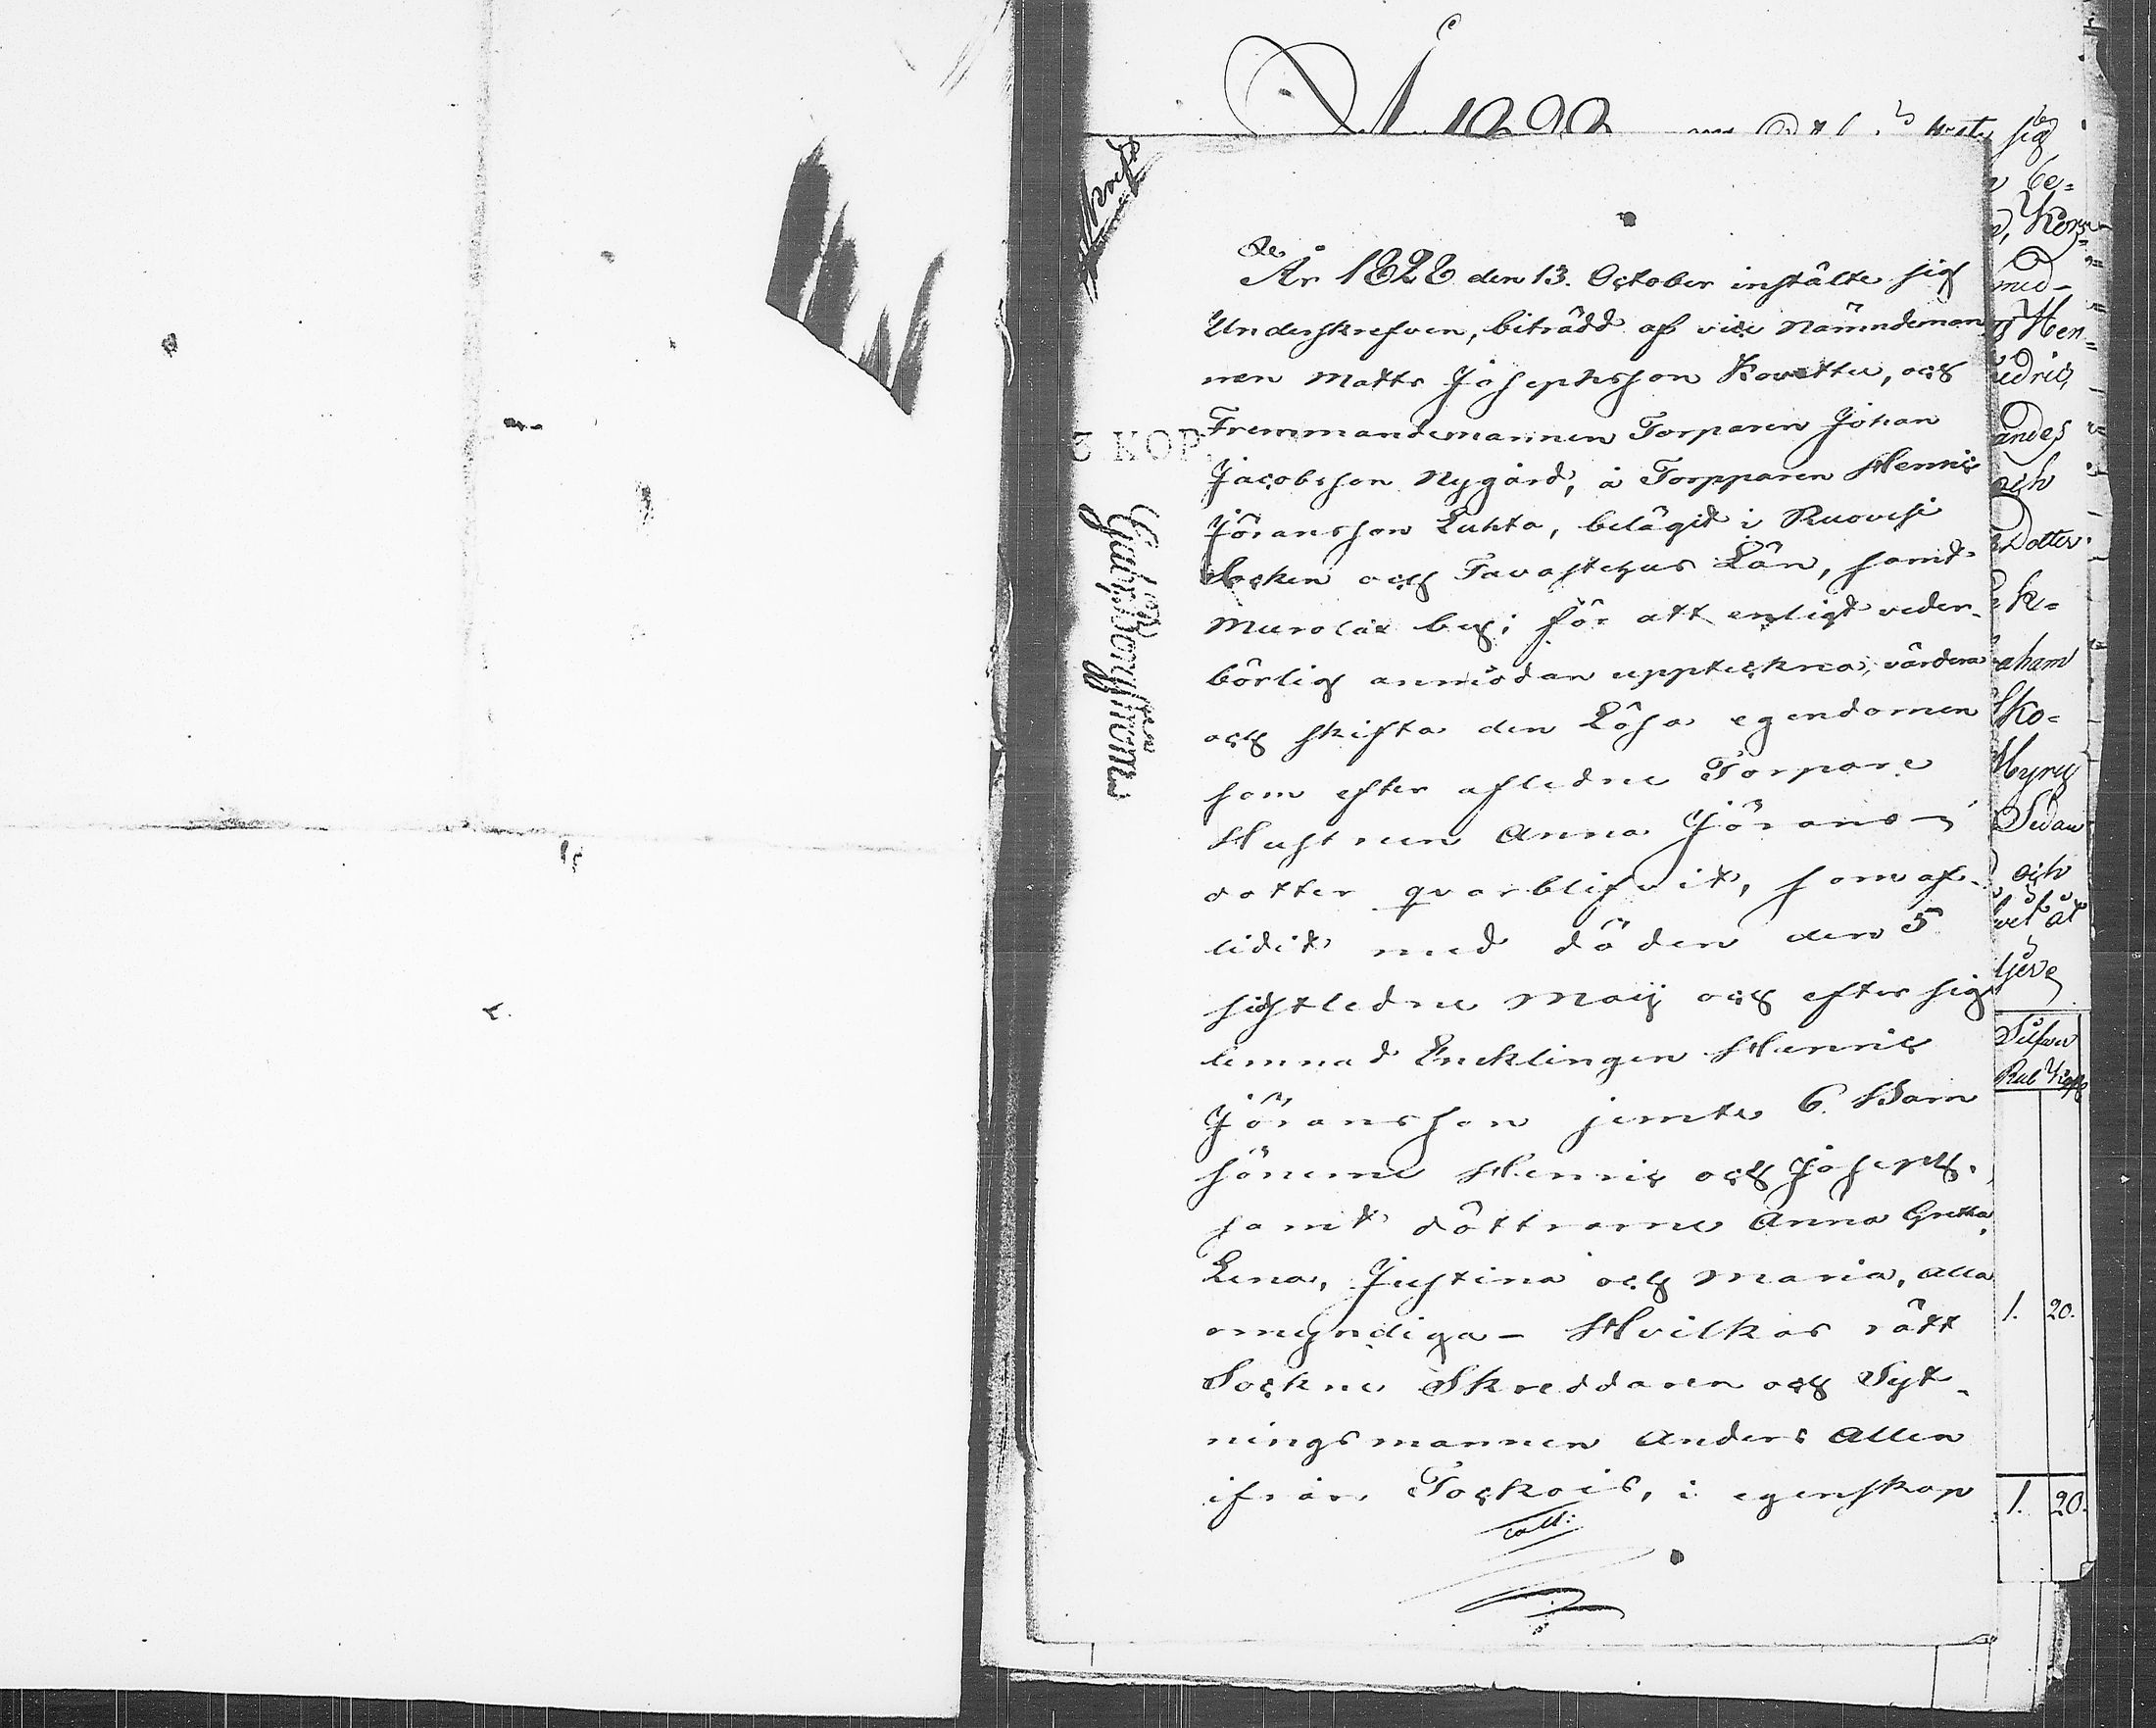 År 1828 den 13. October instälte sig
Underskrefven, biträdd af vice Nämndeman
nen Matts Josephsson Kovattu, och
Fremmandemannen Torparen Johan
Jacobsson Nygård, å Torpparen Henric
Jöransson Luhta, belägit i Ruovesi
Socken och Tavastehus Län, samt
Murolax by; för att enligt veder-
börlig anmodan uppteckna, värdera
och skifta den Lösa egendomen
som efter afledne Torpare
Hustrun Anna Jörans-
dotter qvarblifvit, som af-
lidit med döden den 5
sistledne Maij och efter sig
lemnad Encklingen Henric
Jöransson jemte 6. Barn
sönerne Henric och Joseph,
samt döttrarne Anna Gretha,
Lena, Justina och Maria, alla
omyndiga – Hvilkas rätt
Sockne Skreddaren och Syt-
ningsmannen Anders Allen
ifrån Tockois, i egenskap
Coll:
KOP
sig
be=
med-
Hen=
andes
och
Dotter
k=
aham
sko=
Sedan
och
Silfver
Rub Kop
1. 20.
1. 20.